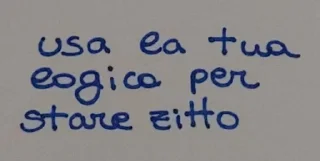 usa la tua
logica per
stare zitto